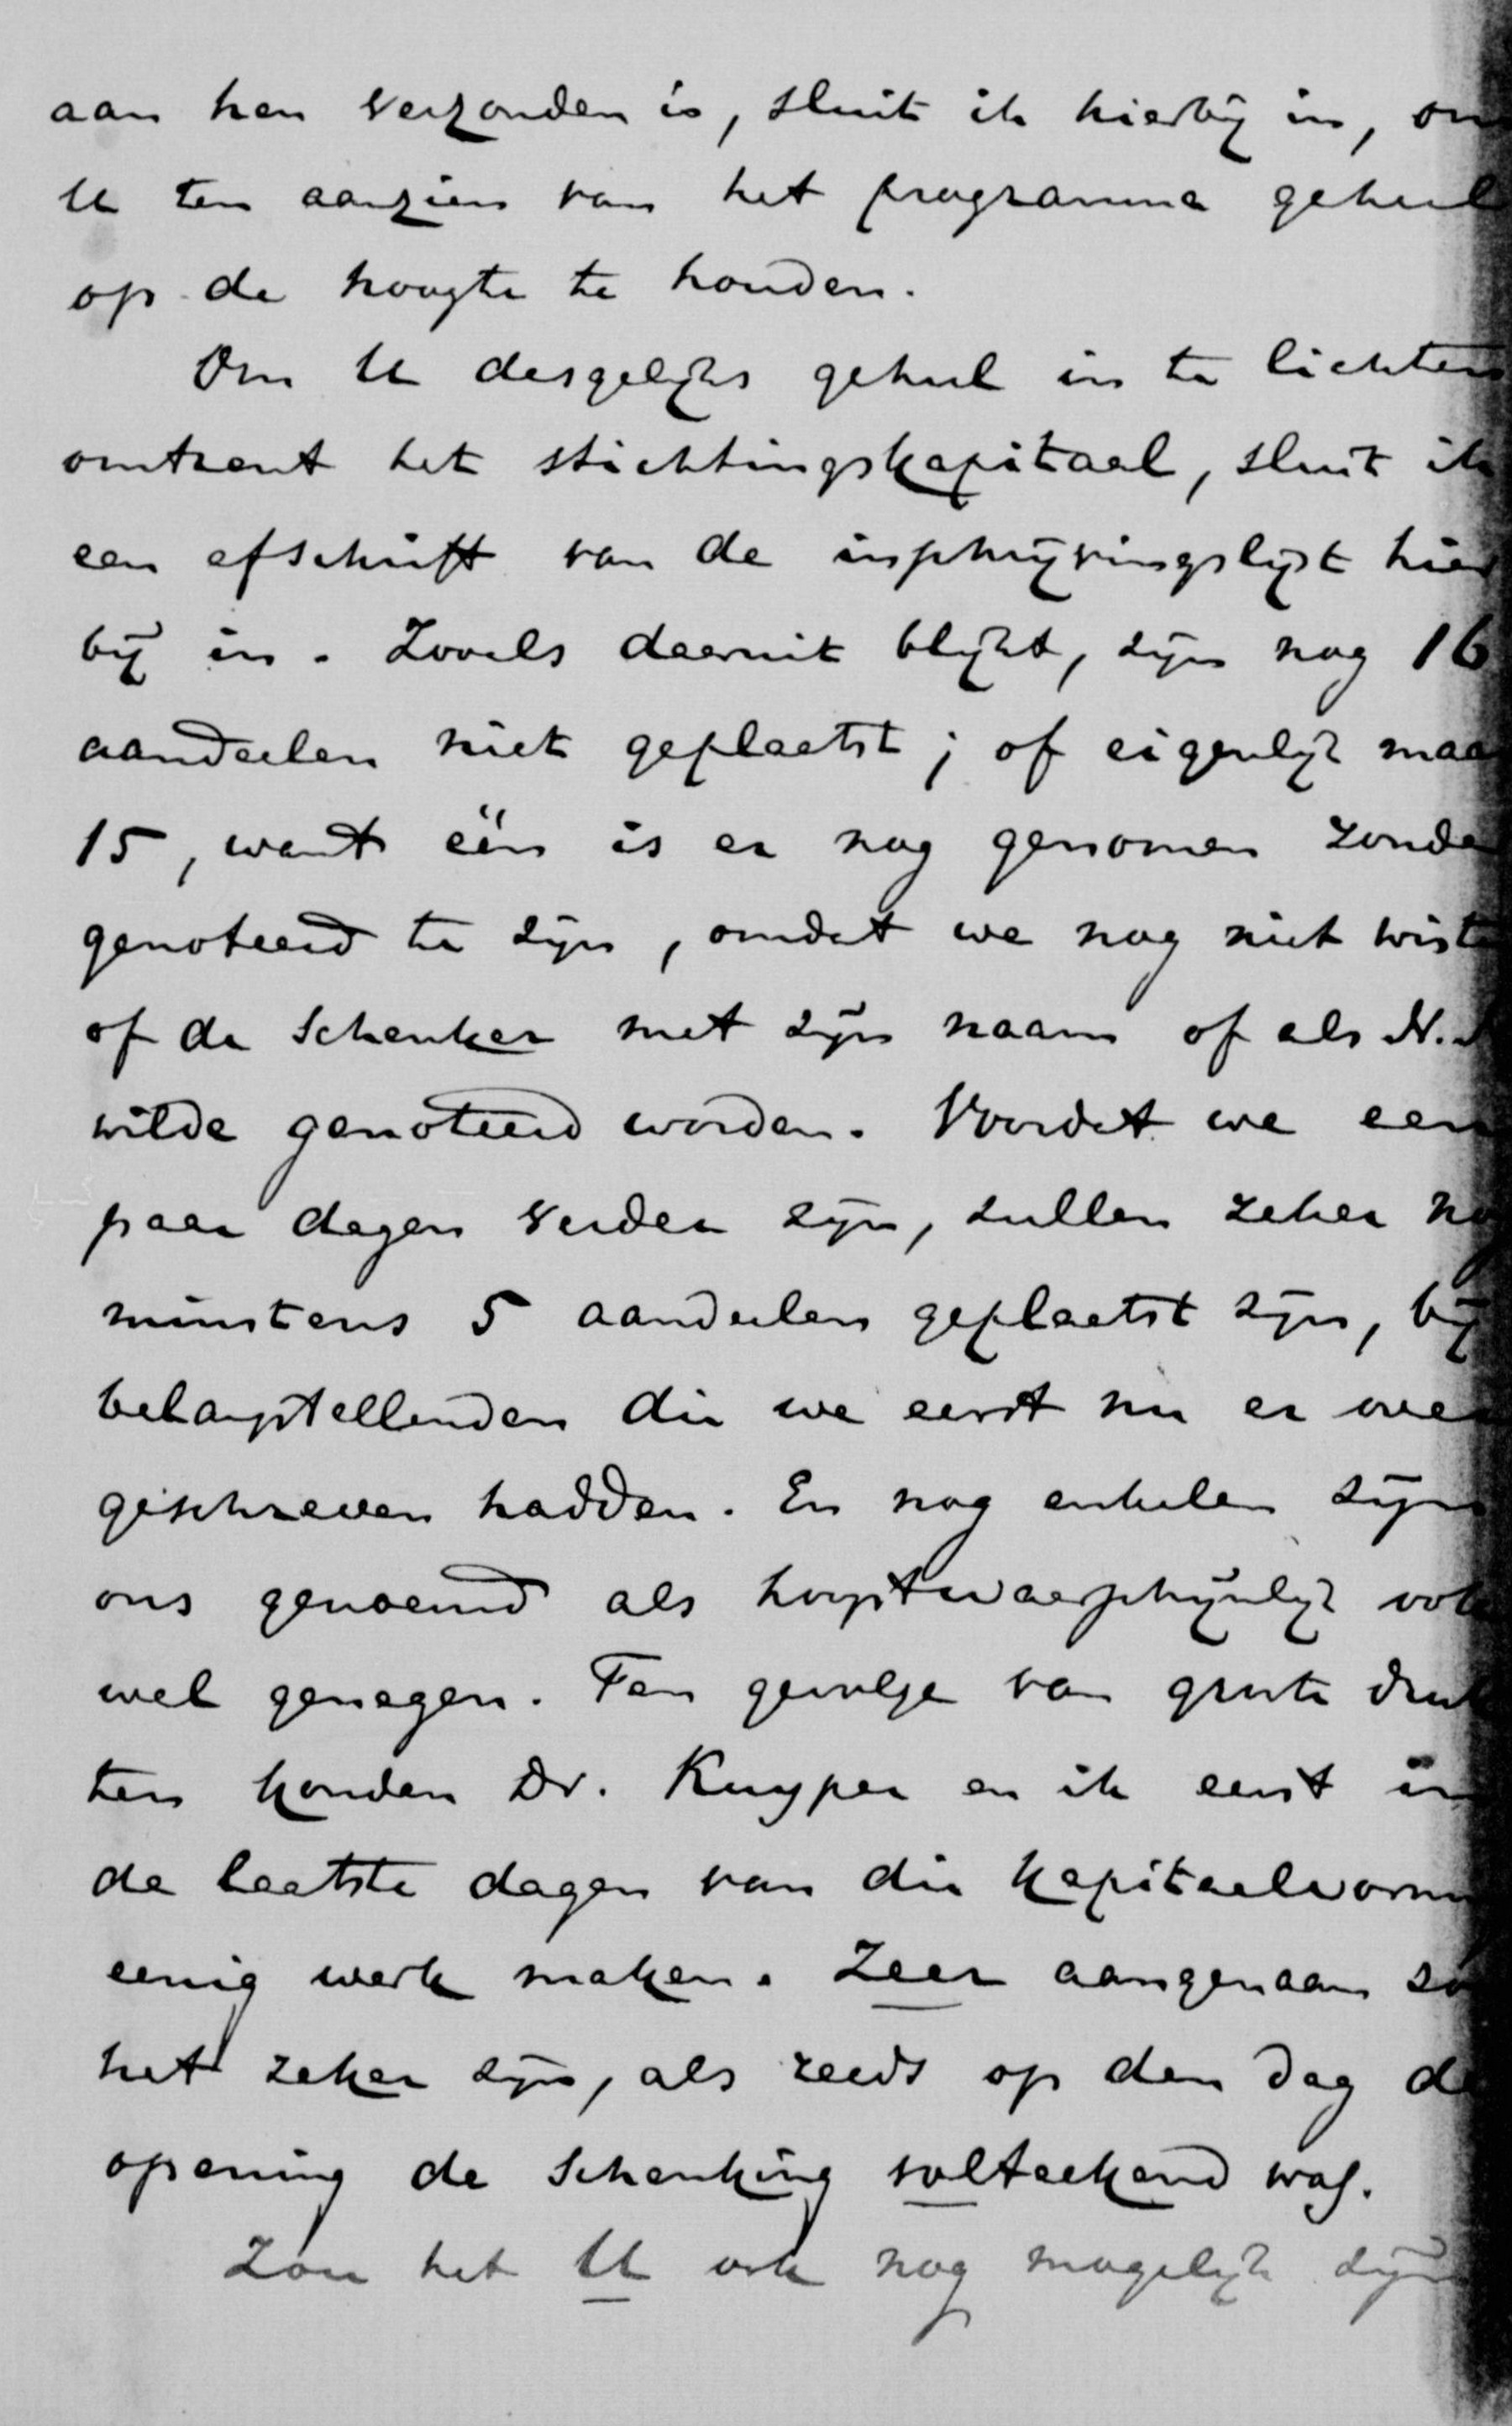 aan hen verzonden is, sluit ik hierbij in, om
U ten aanzien van het programma geheel
op de hoogte te houden.
Om U desgelijks geheel in te lichten
omtrent het stichtingskapitaal, sluit ik
een afschrift van de inschrijvingslijst hier
bij in. Zooals daaruit blijkt, zijn nog 16
aandeelen niet geplaatst; of eigenlijk maar
15, want één is er nog genomen zonder
genoteerd te zijn, omdat we nog niet wisten
of de schenker met zijn naam of als N.
wilde genoteerd worden. Voordat we een
paar dagen verder zijn, zullen zeker nog
minstens 5 aandeelen geplaatst zijn, bij
belangstellenden die we eerst nu er over
geschreven hadden. En nog enkelen zijn
ons genoemd als hoogstwaarschijnlijk ook
wel genegen. Ten gevolge van groote druk
ten konden Dr. Kuyper en ik eerst in
de laatste dagen van die kapitaalvorm
eenig werk maken. Zeer aangenaam zou
het zeker zijn, als reeds op den dag der
opening de schenking volteekend was.
Zou het U ook nog mogelijk zijn